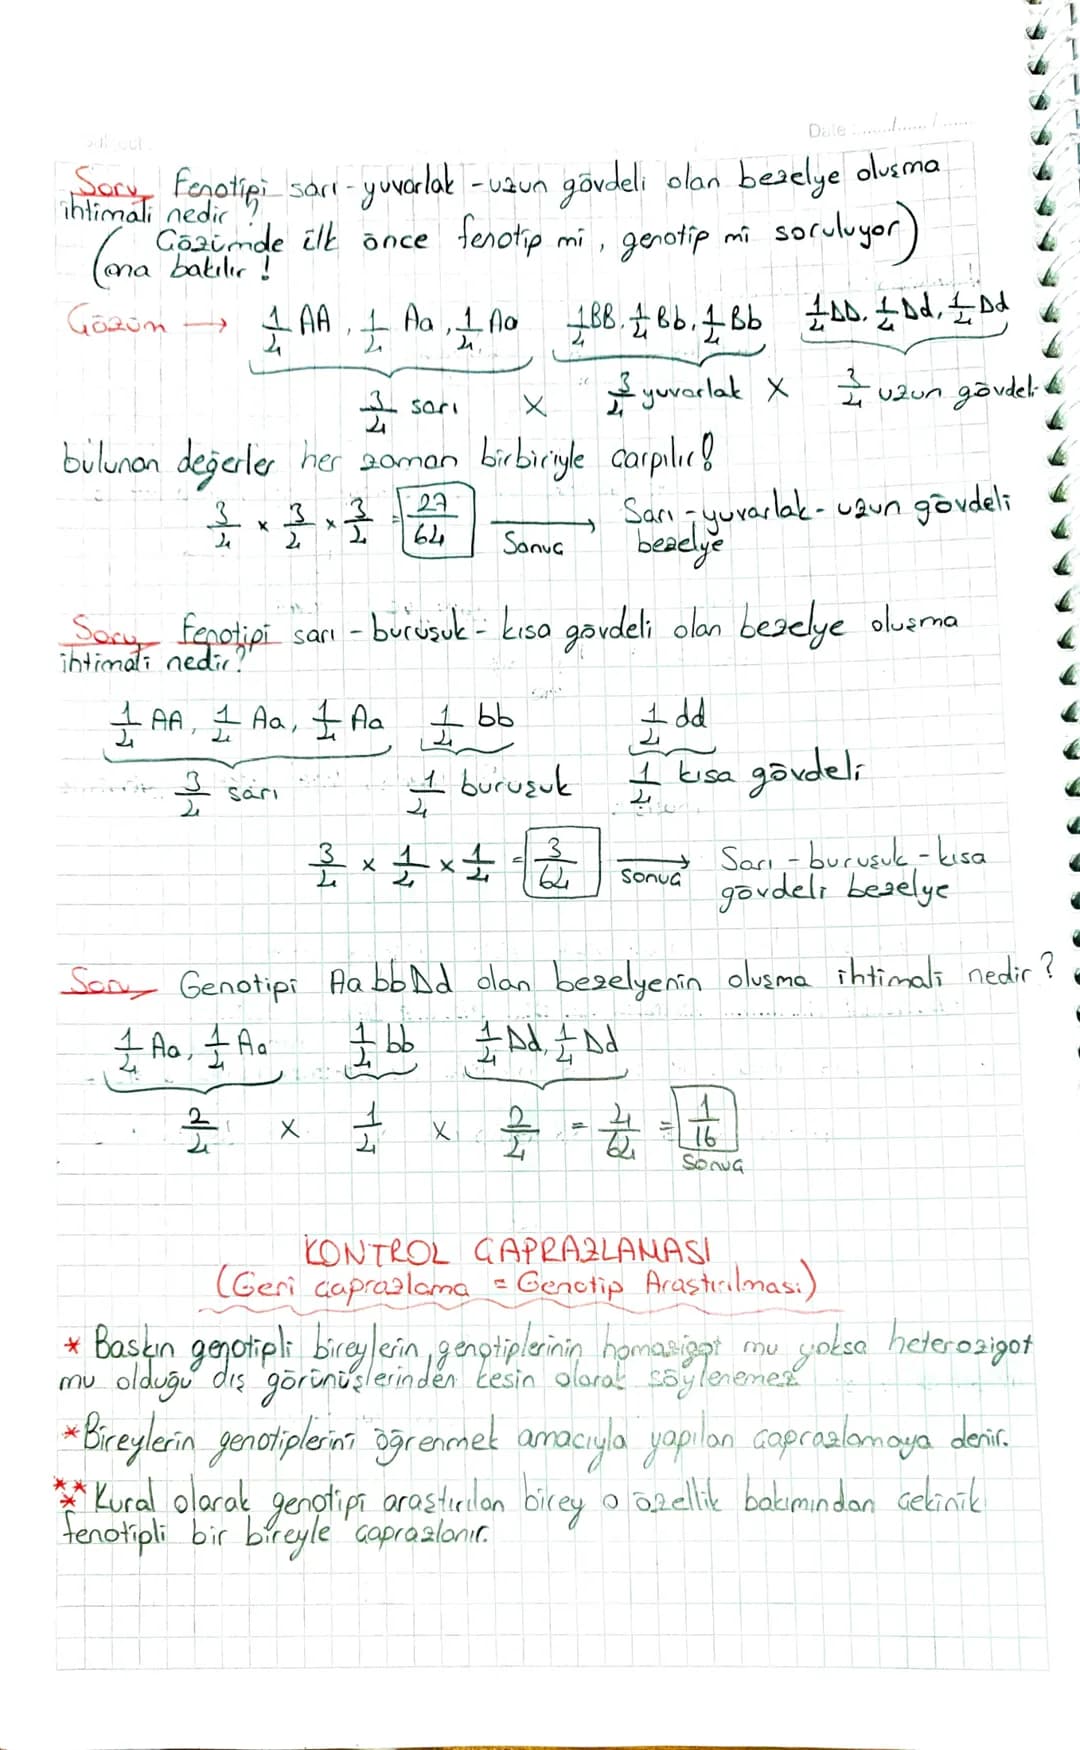 Date :
Soru Fenotipi sarı - yuvarlak - uzun gövdeli olan bezelye oluşma
ihtimali nedir ?
(Çözümde ilk önce fenotip mi, genotip mi soruluyor
ona bakılır !)
Çözüm → 1/4 AA, 1/4 Aa, 1/4 Aa 1/4 BB, 1/4 Bb, 1/4 Bb 1/4 DD, 1/4 Dd, 1/4 Dd
3/4 sarı x 3/4 yuvarlak x 3/4 uzun gövdeli
bulunan değerler her zaman birbiriyle çarpılır!
3/4 x 3/4 x 3/4 = 27/64 Sonuç → Sarı - yuvarlak - uzun gövdeli
bezelye
Soru Fenotipi sarı - buruşuk - kısa gövdeli olan bezelye oluşma
ihtimali nedir?
1/4 AA, 1/4 Aa, 1/4 Aa 1/4 bb 1/4 dd
3/4 sarı 1/4 buruşuk 1/4 kısa gövdeli
3/4 x 1/4 x 1/4 = 3/64 sonuç → Sarı - buruşuk - kısa
gövdeli bezelye
Soru Genotipi AabbDd olan bezelyenin oluşma ihtimali nedir?
1/4 Aa, 1/4 Aa 1/4 bb 1/4 Dd, 1/4 Dd
2/4 x 1/4 x 2/4 = 4/64 = 1/16
sonuç
KONTROL ÇAPRAZLAMASI
(Geri çaprazlama = Genotip Araştırılması)
* Baskın genotipli bireylerin, genotiplerinin homozigot mu yoksa heterozigot
mu olduğu dış görünüşlerinden kesin olarak söylenemez
* Bireylerin genotiplerini öğrenmek amacıyla yapılan çaprazlamaya denir.
*** Kural olarak genotipi araştırılan birey o özellik bakımından çekinik
fenotipli bir bireyle çaprazlanır.